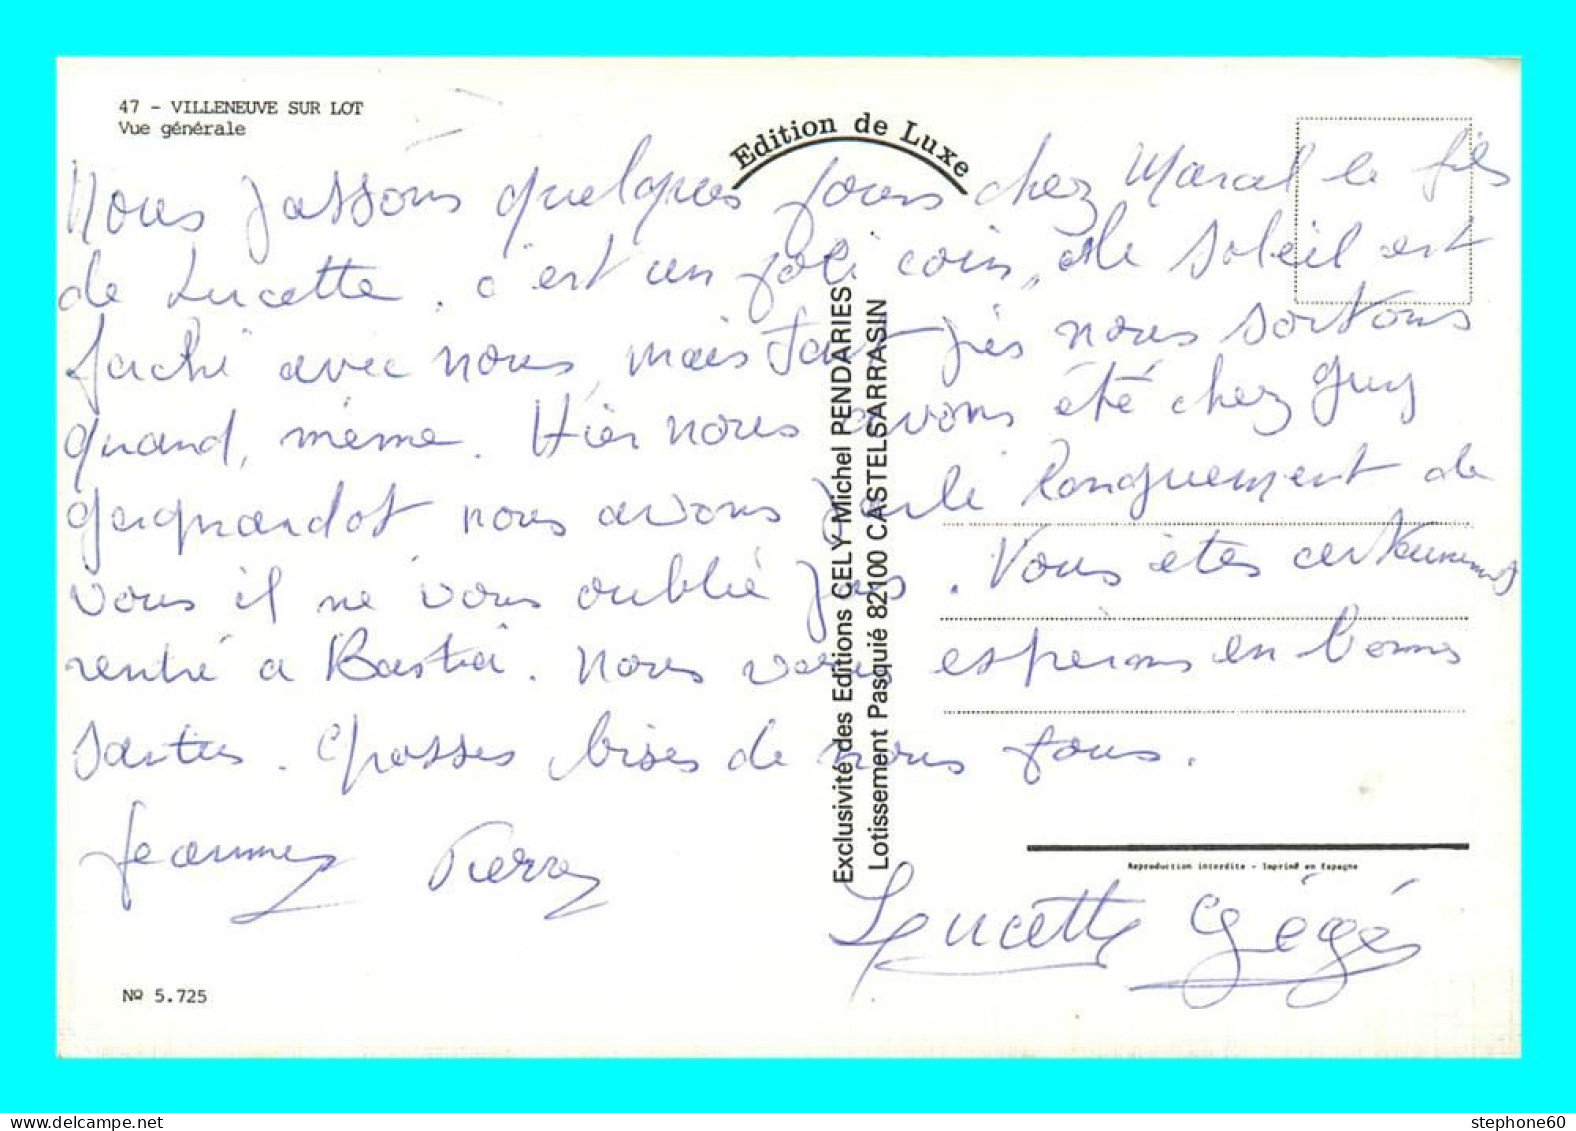 47 - VILLENEUVE SUR LOT
Vue générale
Edition de Luxe
Nous passons quelques jours chez Marcel le fils
de Lucette. c'est un joli coin, le soleil est
faché avec nous, mais tant pis nous sortons
quand, même. Hier nous avons été chez Guy
nous avons parlé longuement de
vous il ne vous oublié pas. Vous êtes certainement
rentré a Bastia. Nous vous espérons en bonnes
santés. Grosses bises de nous tous.
Jeanne Pierre
Lucette Gégé
Exclusivité des Editions CELY Michel PENDARIES
Lotissement Pasquié 82100 CASTELSARRASIN
Reproduction interdite - Imprimé en Espagne
Nº 5.725
stephone60